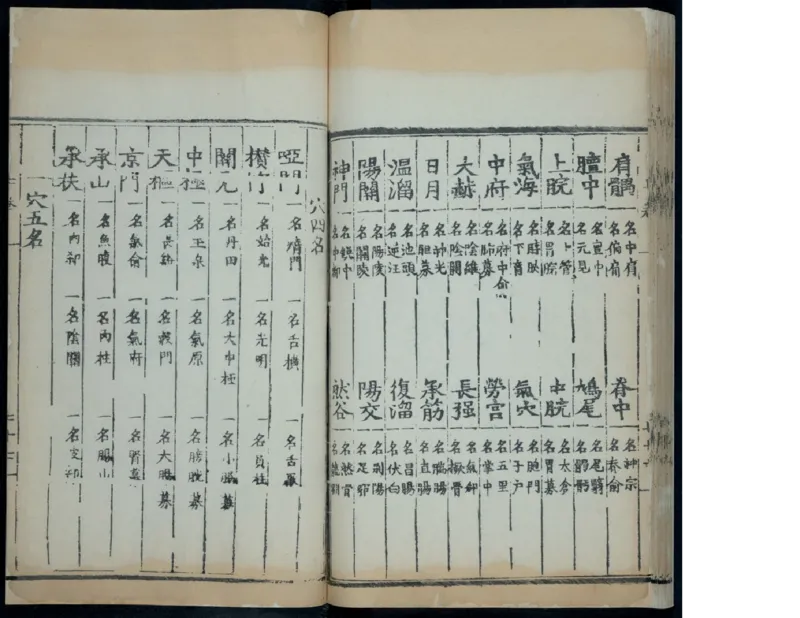 肩髃 一名中肩 一名偏肩
膻中 一名亶中 一名元見
上脘 一名上管 一名胃脘
氣海 一名脖胦 一名下肓
中府 一名府中俞 一名肺募
大赫 一名陰維 一名陰關
日月 一名神光 一名膽募
温溜 一名池頭 一名逆注
陽關 一名陽陵 一名關陵
神門 一名銳中 一名中都
脊中 一名神宗 一名脊俞
鳩尾 一名尾翳 一名𩩲骬
中脘 一名太倉 一名胃募
氣穴 一名胞門 一名子户
勞宮 一名五里 一名掌中
長强 一名氣郄 一名橛骨
承筋 一名腨腸 一名直腸
復溜 一名昌陽 一名伏白
陽交 一名别陽 一名足窌
然谷 一名然骨 一名龍淵
穴四名
啞門 一名瘖門 一名舌横 一名舌厭
攅竹 一名始光 一名光明 一名員柱
關元 一名丹田 一名大中極 一名小腸募
中極 一名玉泉 一名氣原 一名膀胱募
天樞 一名長谿 一名穀門 一名大腸募
京門 一名氣俞 一名氣府 一名腎募
承山 一名魚腹 一名肉柱 一名腸山
承扶 一名肉郄 一名陰關 一名皮部
一穴五名